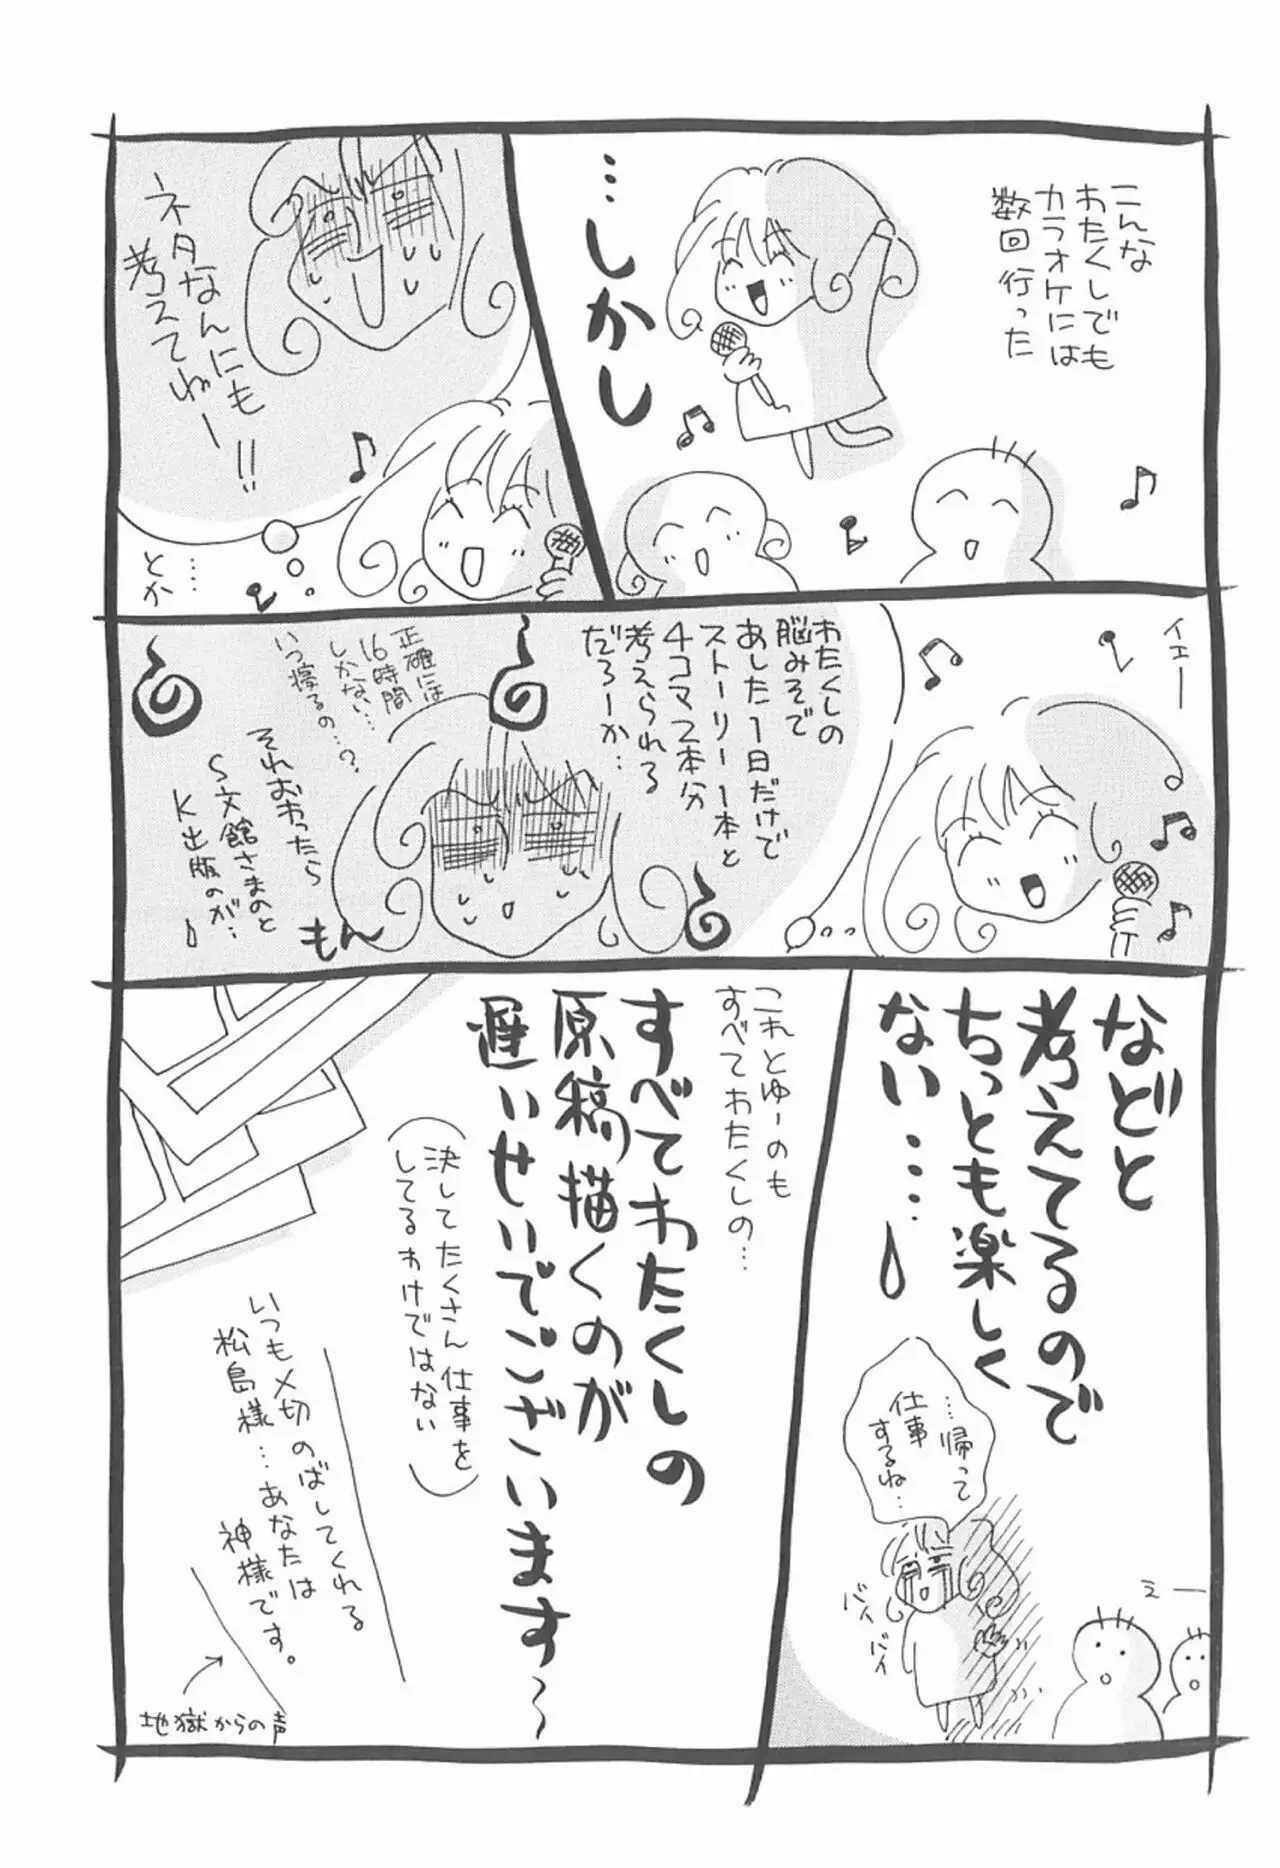 こんな
わたくしでも
カラオケには
数回行った
…しかし
ネタなんにも
考えてねー!!
……
とか
イエー
わたくしの
脳みそで
あした1日だけで
ストーリー1本と
4コマ2本分
考えられる
だろーか…
正確には
16時間
しかない…
いつ寝るの…?
それおわったら
S文館さまのと
K出版のが…
もん
などと
考えてるので
ちっとも楽しく
ない……
…帰って
仕事
するね…
バイ
バイ
えー
これとゆーのも
すべてわたくしの…
すべてわたくしの
原稿描くのが
遅いせいでございます〜
(決してたくさん仕事を
してるわけではない)
いつも〆切のばしてくれる
松島様…あなたは
神様です。
地獄からの声